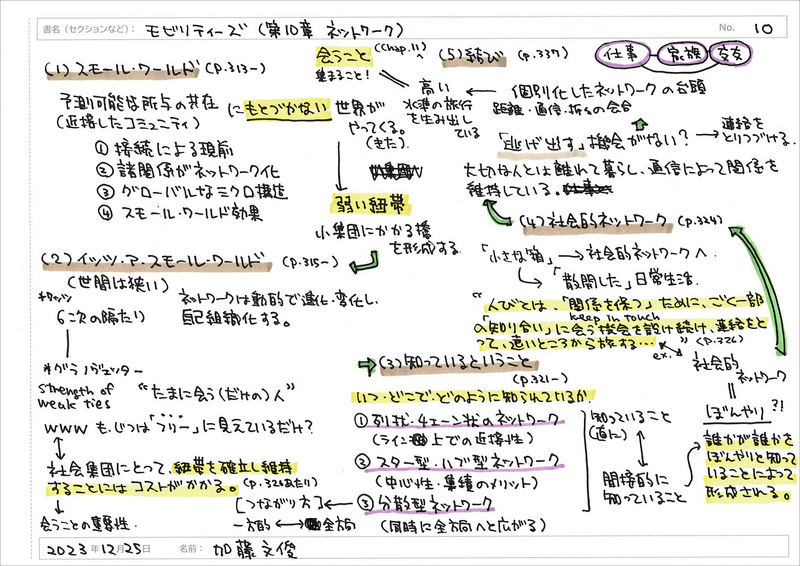 書名（セクションなど）： モビリティーズ（第10章 ネットワーク） No. 10
(1) スモール・ワールド (p.313-)
予測可能な所与の共在
（近接したコミュニティ）
にもとづかない 世界が
やってくる。
（きた）
① 接続による現前
② 諸関係がネットワーク化
③ グローバルなミクロ構造
④ スモール・ワールド効果
弱い紐帯
小集団にかかる橋
を形成する。
(2) イッツ・ア・スモール・ワールド (p.315-)
（世間は狭い）
＊ワッツ
6次の隔たり
ネットワークは動的で進化・変化し、
自己組織化する。
＊グラノヴェッター
strength of
weak ties
“たまに会う（だけの）人”
WWW も、じつは「フリー」に見えているだけ？
社会集団にとって、紐帯を確立し維持
することにはコストがかかる。 (p.320あたり)
会うことの重要性。
会うこと (Chap.11)
集まること！
(5) 結び (p.337)
仕事 家族 友
高い
水準の旅行
を生み出し
ている
個別化したネットワークの台頭
距離・通信・折々の会合
「逃げ出す」機会がない？ → 連絡を
とりつづける。
大切な人とは離れて暮らし、通信によって関係を
維持している。
(4) 社会的ネットワーク (p.324)
「小さな箱」→ 社会的ネットワークへ
「散開した」日常生活。
“人びとは、「関係を保つ」ために、ごく一部
keep in touch
の「知り合い」に会う機会を設け続け、連絡をと
って、遠いところから旅する…” (p.326)
ex.
社会的
ネットワーク
ぼんやり ?!
誰かが誰かを
ぼんやりと知って
いることによって
形成される。
(3) 知っているということ
(p.321-)
いつ・どこで・どのように知られているか。
① 列状・チェーン状のネットワーク
（ライン上での近接性）
② スター型・ハブ型ネットワーク
（中心性・集積のメリット）
③ 分散型ネットワーク
（同時に全方向へと広がる）
［つながり方］
一方的 ↔ 全方向
知っていること
（直に）
間接的に
知っていること
2023 年 12 月 25 日 名前： 加藤文俊